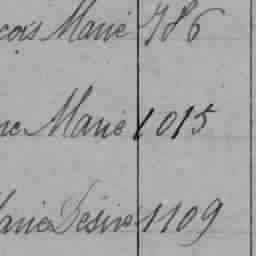 cois Marie 986
ne Marie 1015
Marie Désiré 1109